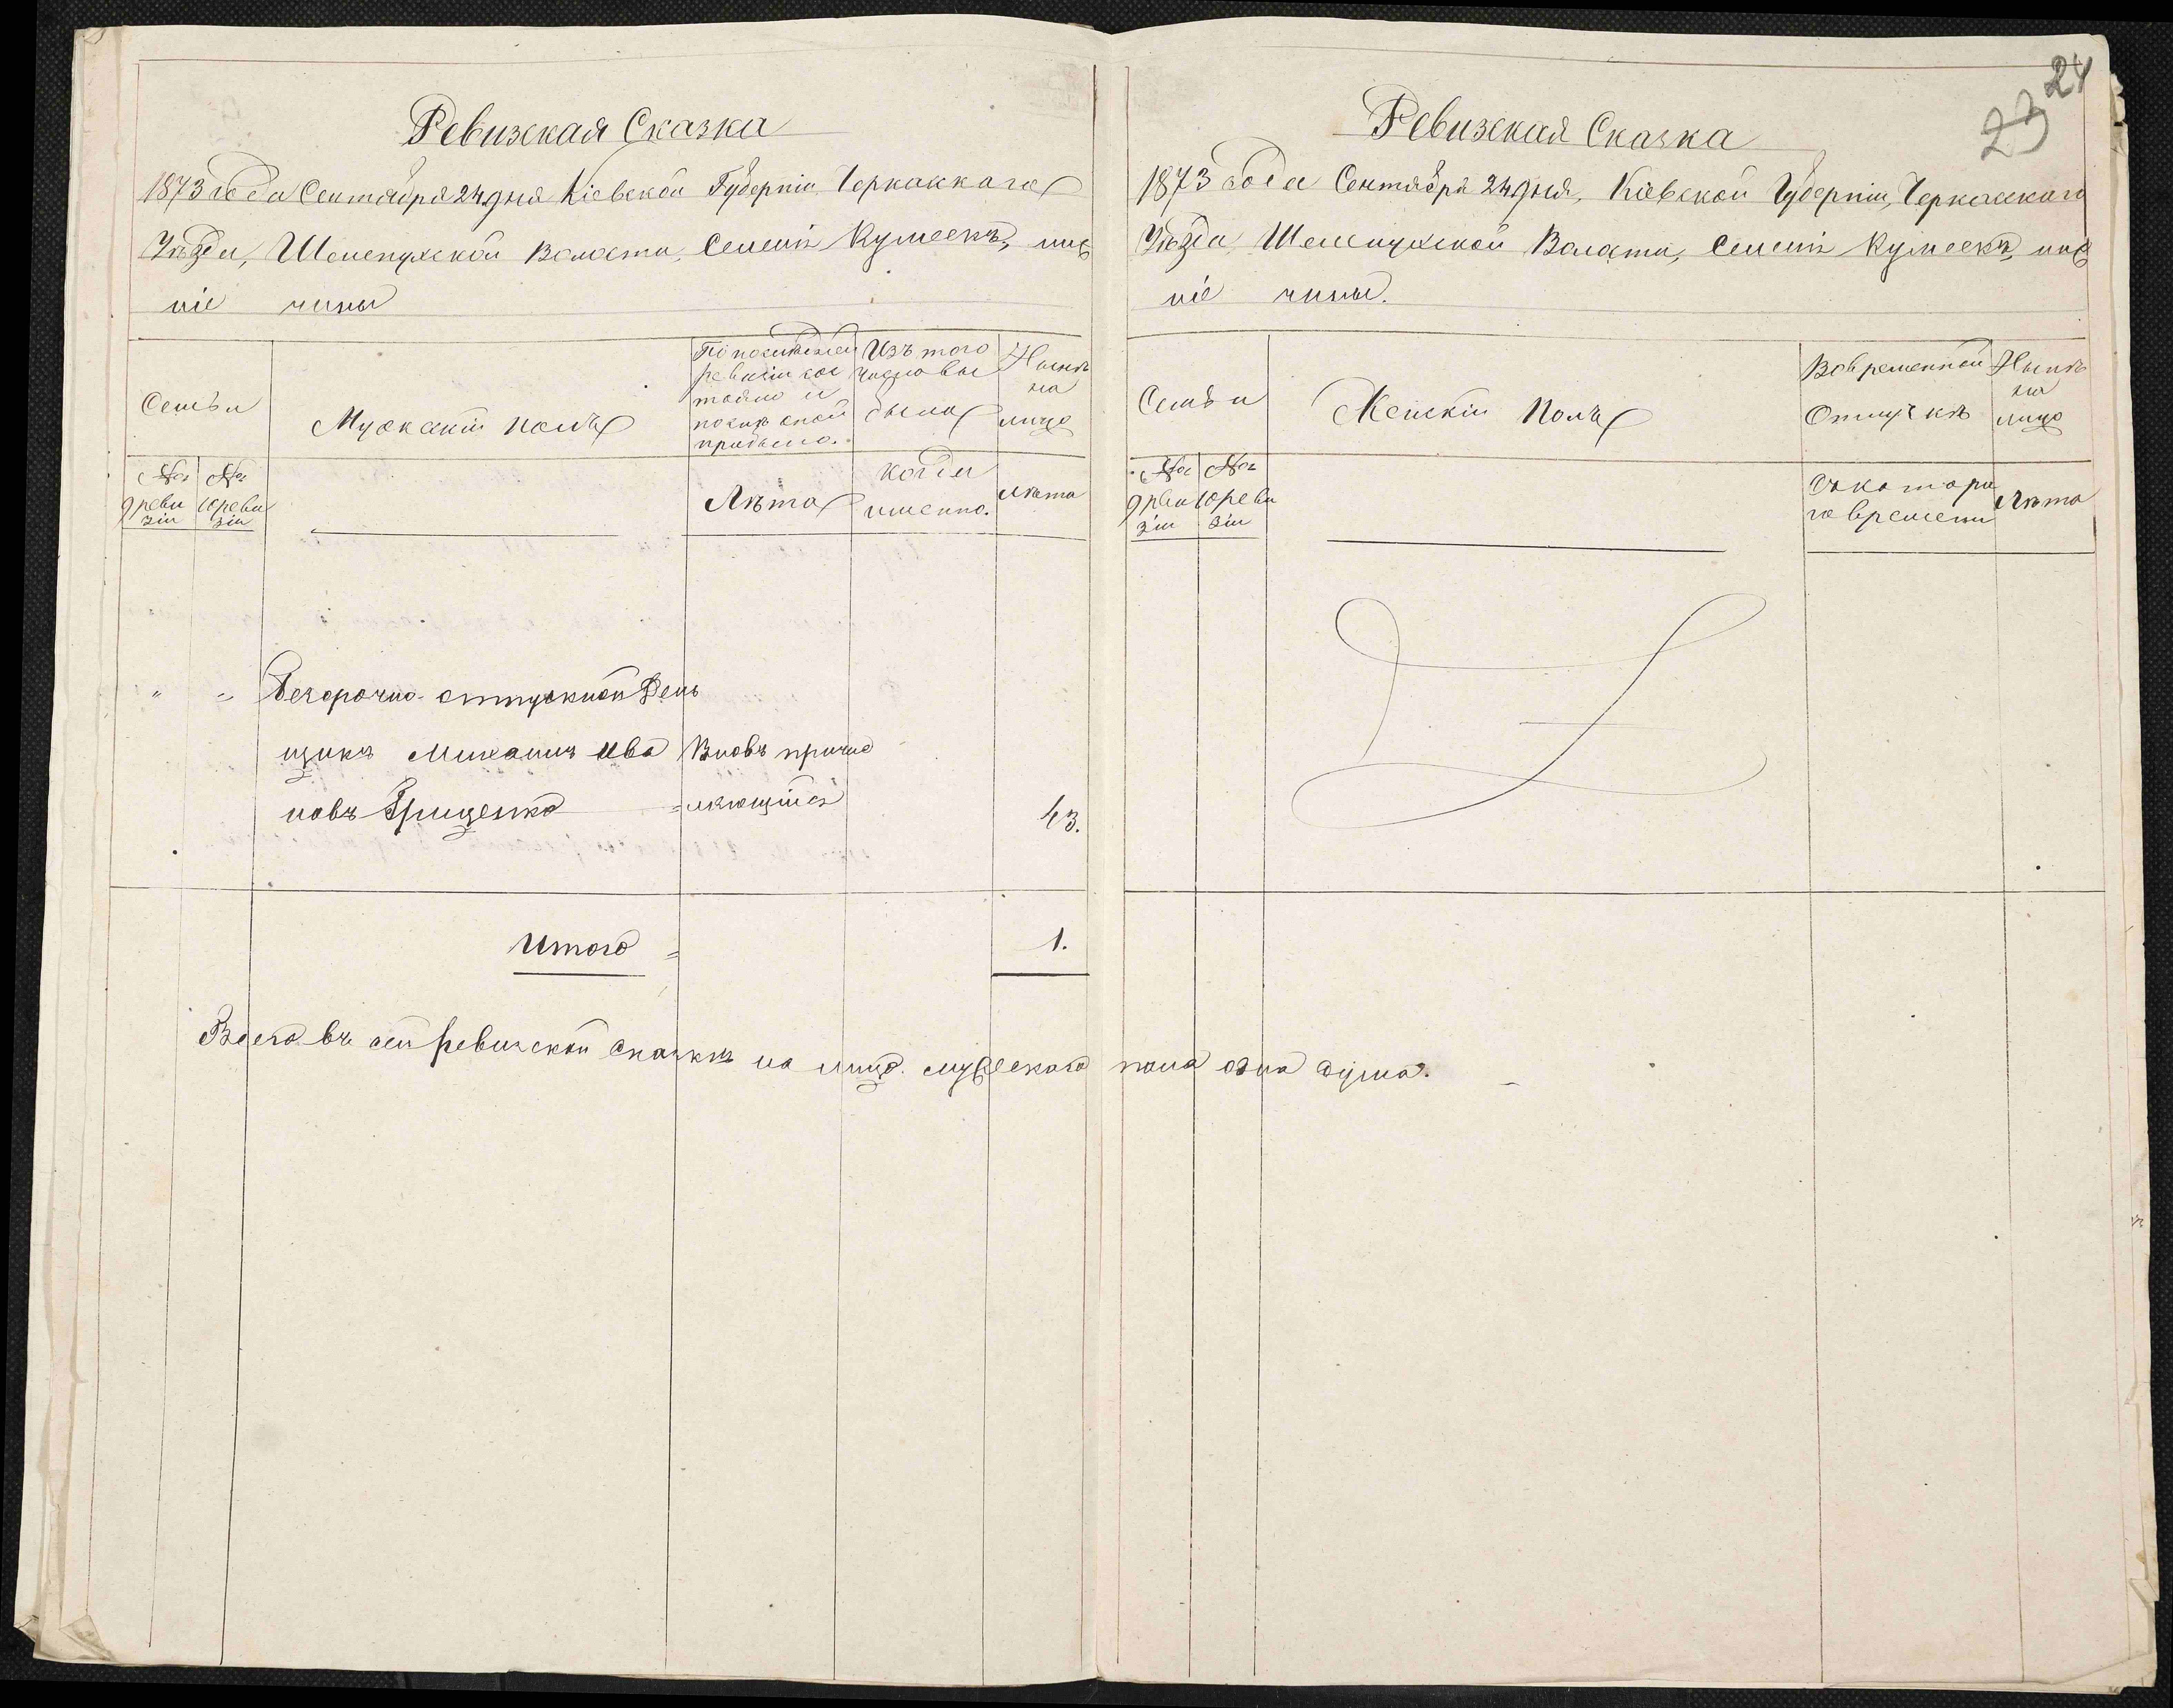 Ревизская Сказка
1873 года Сентября 24 дня Кіевской Губерніи Черкасскаго
Уѣзда, Шелепухской Волости, Селенія Кумеекъ, ниж
ніе чины
Семьи
Мужескій полъ
По послѣдней
ревизіи сос
тояло и
послѣ оной
прибыло.
Изъ того
числа вы
было
Нынѣ
на
лицо
№ №
9 реви 10 реви
зіи зіи
Лѣта
когда
именно.
Лѣта
" " Безсрочно-отпускной День
щикъ Михаилъ Ива Вновь причис
новъ Грищенко = ляющійся 43.
Итого = 1.
Всего въ сей ревизской сказкѣ на лицо мужескаго пола одна душа.
24
23
Ревизская Сказка
1873 года Сентября 24 дня, Кіевской Губерніи, Черкасскаго
Уѣзда Шелепухской Волости, Селенія Кумеекъ, ниж
ніе чины.
Семьи
Женскій Полъ
Во временной
Отлучкѣ
Нынѣ
на
лицо
№ №
9 реви 10 реви
зіи зіи
Съ котора
го времени
Лѣта